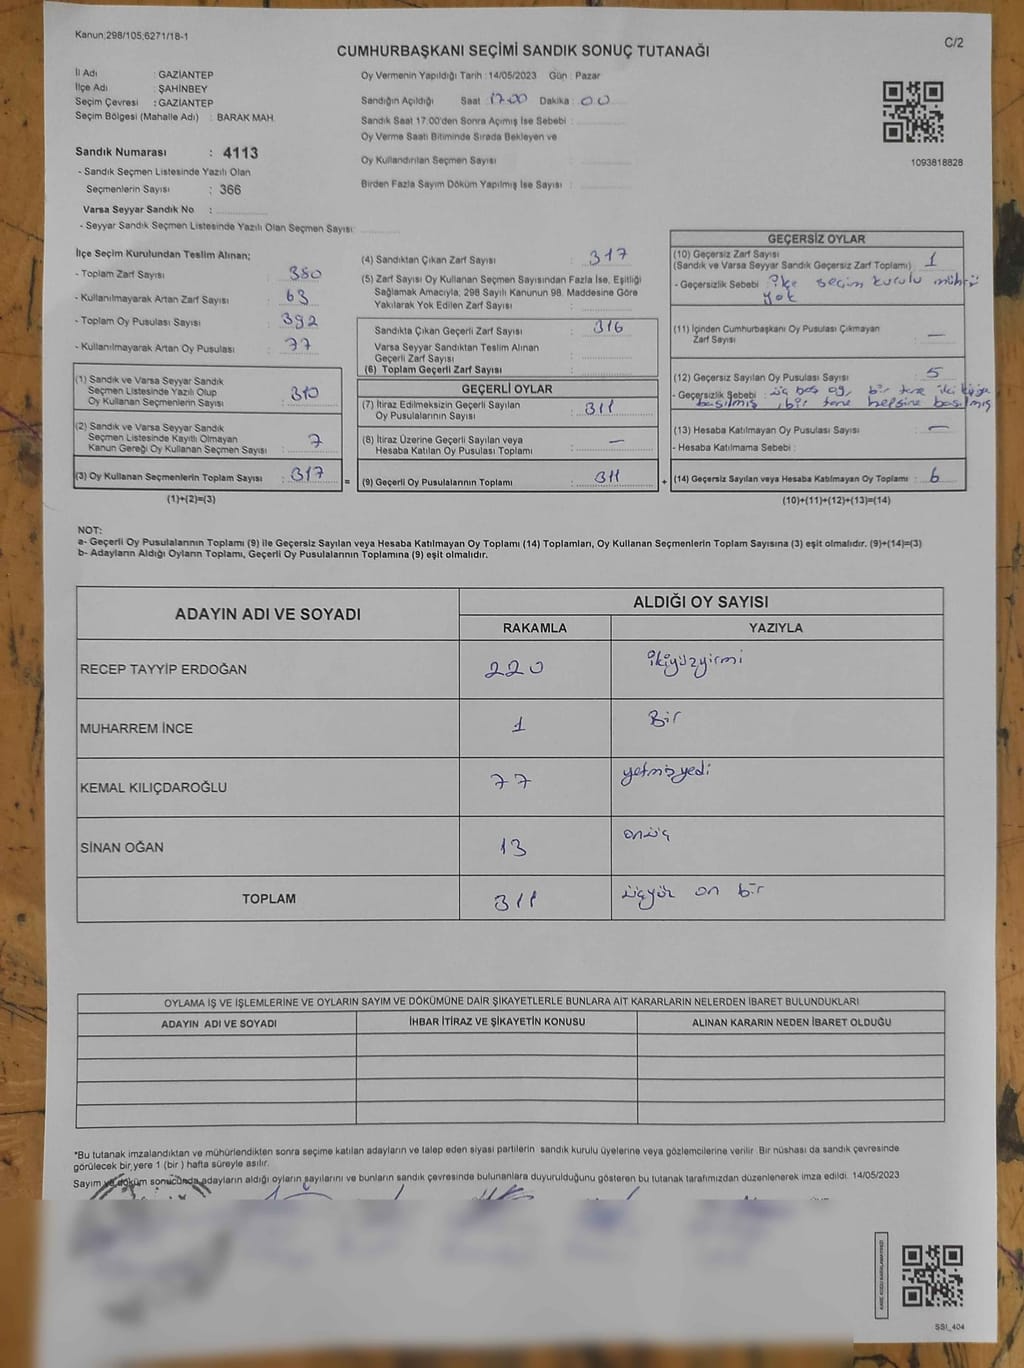 Kanun;298/105,6271/18-1
C/2
CUMHURBAŞKANI SEÇİMİ SANDIK SONUÇ TUTANAĞI
İl Adı : GAZİANTEP
İlçe Adı : ŞAHİNBEY
Seçim Çevresi : GAZİANTEP
Seçim Bölgesi (Mahalle Adı) : BARAK MAH.
Oy Vermenin Yapıldığı Tarih : 14/05/2023 Gün : Pazar
Sandığın Açıldığı Saat 17.00 Dakika : 00
Sandık Saat 17:00'den Sonra Açımış İse Sebebi :
Oy Verme Saati Bitiminde Sırada Bekleyen ve
Oy Kullandırılan Seçmen Sayısı :
Birden Fazla Sayım Döküm Yapılmış İse Sayısı :
1093818828
Sandık Numarası : 4113
- Sandık Seçmen Listesinde Yazılı Olan
Seçmenlerin Sayısı : 366
Varsa Seyyar Sandık No :
- Seyyar Sandık Seçmen Listesinde Yazılı Olan Seçmen Sayısı:
İlçe Seçim Kurulundan Teslim Alınan;
- Toplam Zarf Sayısı : 380
- Kullanılmayarak Artan Zarf Sayısı : 63
- Toplam Oy Pusulası Sayısı : 392
- Kullanılmayarak Artan Oy Pusulası : 77
(1) Sandık ve Varsa Seyyar Sandık
Seçmen Listesinde Yazılı Olup
Oy Kullanan Seçmenlerin Sayısı : 310
(2) Sandık ve Varsa Seyyar Sandık
Seçmen Listesinde Kayıtlı Olmayan
Kanun Gereği Oy Kullanan Seçmen Sayısı : 7
(3) Oy Kullanan Seçmenlerin Toplam Sayısı : 317
(1)+(2)=(3)
(4) Sandıktan Çıkan Zarf Sayısı : 317
(5) Zarf Sayısı Oy Kullanan Seçmen Sayısından Fazla İse, Eşitliği
Sağlamak Amacıyla, 298 Sayılı Kanunun 98. Maddesine Göre
Yakılarak Yok Edilen Zarf Sayısı :
Sandıkta Çıkan Geçerli Zarf Sayısı : 316
Varsa Seyyar Sandıktan Teslim Alınan
Geçerli Zarf Sayısı :
(6) Toplam Geçerli Zarf Sayısı :
GEÇERLİ OYLAR
(7) İtiraz Edilmeksizin Geçerli Sayılan
Oy Pusulalarının Sayısı : 311
(8) İtiraz Üzerine Geçerli Sayılan veya
Hesaba Katılan Oy Pusulası Toplamı : —
(9) Geçerli Oy Pusulalarının Toplamı : 311
=
+
GEÇERSİZ OYLAR
(10) Geçersiz Zarf Sayısı
(Sandık ve Varsa Seyyar Sandık Geçersiz Zarf Toplamı) : 1
- Geçersizlik Sebebi : İlçe seçim kurulu mührü
yok
(11) İçinden Cumhurbaşkanı Oy Pusulası Çıkmayan
Zarf Sayısı : —
(12) Geçersiz Sayılan Oy Pusulası Sayısı : 5
- Geçersizlik Sebebi : üç boş oy, bir tane iki kişiye
basılmış, bir tane hepsine basılmış
(13) Hesaba Katılmayan Oy Pusulası Sayısı : —
- Hesaba Katılmama Sebebi :
(14) Geçersiz Sayılan veya Hesaba Katılmayan Oy Toplamı : 6
(10)+(11)+(12)+(13)=(14)
NOT:
a- Geçerli Oy Pusulalarının Toplamı (9) ile Geçersiz Sayılan veya Hesaba Katılmayan Oy Toplamı (14) Toplamları, Oy Kullanan Seçmenlerin Toplam Sayısına (3) eşit olmalıdır. (9)+(14)=(3)
b- Adayların Aldığı Oyların Toplamı, Geçerli Oy Pusulalarının Toplamına (9) eşit olmalıdır.
ADAYIN ADI VE SOYADI
ALDIĞI OY SAYISI
RAKAMLA
YAZIYLA
RECEP TAYYİP ERDOĞAN 220 ikiyüzyirmi
MUHARREM İNCE 1 Bir
KEMAL KILIÇDAROĞLU 77 yetmişyedi
SİNAN OĞAN 13 onüç
TOPLAM 311 üçyüz on bir
OYLAMA İŞ VE İŞLEMLERİNE VE OYLARIN SAYIM VE DÖKÜMÜNE DAİR ŞİKAYETLERLE BUNLARA AİT KARARLARIN NELERDEN İBARET BULUNDUKLARI
ADAYIN ADI VE SOYADI
İHBAR İTİRAZ VE ŞİKAYETİN KONUSU
ALINAN KARARIN NEDEN İBARET OLDUĞU
*Bu tutanak imzalandıktan ve mühürlendikten sonra seçime katılan adayların ve talep eden siyasi partilerin sandık kurulu üyelerine veya gözlemcilerine verilir. Bir nüshası da sandık çevresinde
görülecek bir yere 1 (bir ) hafta süreyle asılır.
Sayım ve döküm sonucunda adayların aldığı oyların sayılarını ve bunların sandık çevresinde bulunanlara duyurulduğunu gösteren bu tutanak tarafımızdan düzenlenerek imza edildi. 14/05/2023
SSI_404